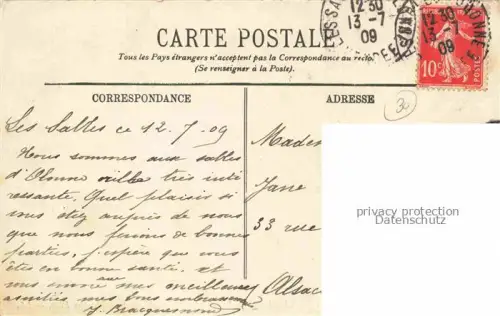 12 30
13-7
09
LES SA
12 30
13-7
09
OLONNE
10c
CARTE POSTALE
Tous les Pays étrangers n'acceptent pas la Correspondance au recto
(Se renseigner à la Poste).
CORRESPONDANCE
ADRESSE
30
Les Sables ce 12.7.09
Nous sommes aux sables
d'Olonne ville très inté
ressante. Quel plaisir si
vous étiez auprès de nous
que nous ferions de bonnes
parties, j'espère que vous
êtes en bonne santé. et
vous envoie mes meilleures
amitiés mes bons
J. Bracquemond
Madem
Jane
33 rue
Alsac
privacy protection
Datenschutz